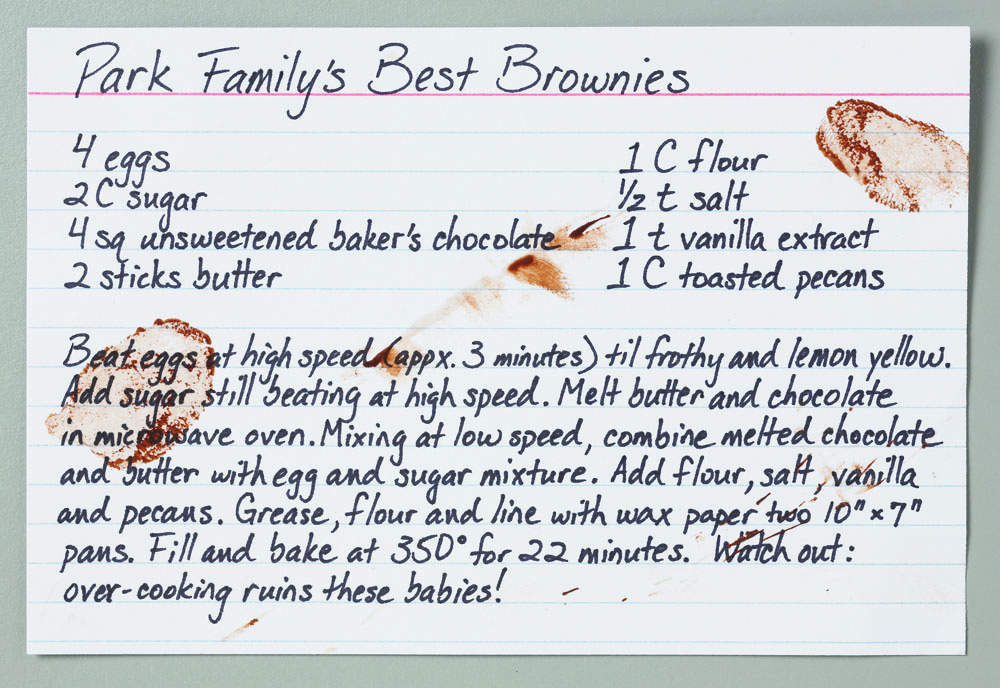 Park Family's Best Brownies
4 eggs
2 C sugar
4 sq unsweetened baker's chocolate
2 sticks butter
1 C flour
1/2 t salt
1 t vanilla extract
1 C toasted pecans
Beat eggs at high speed (appx. 3 minutes) til frothy and lemon yellow.
Add sugar still beating at high speed. Melt butter and chocolate
in microwave oven. Mixing at low speed, combine melted chocolate
and butter with egg and sugar mixture. Add flour, salt, vanilla
and pecans. Grease, flour and line with wax paper two 10" x 7"
pans. Fill and bake at 350° for 22 minutes. Watch out:
over-cooking ruins these babies!